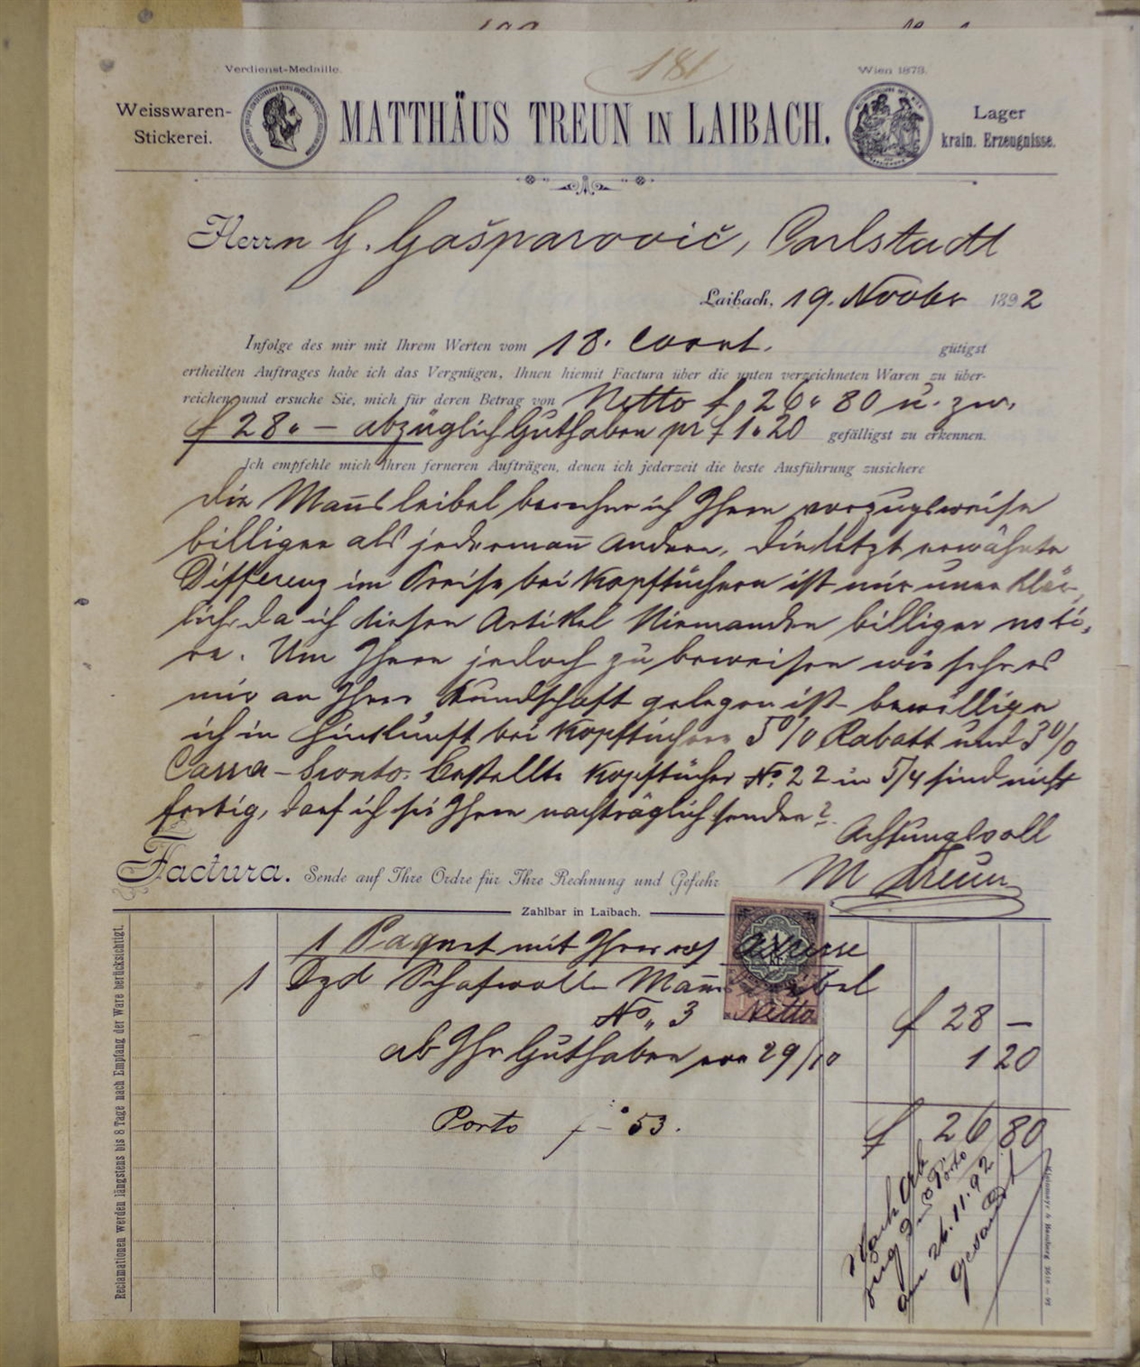 181
Verdienst-Medaille.
Wien 1873.
Weisswaren-
Stickerei.
MATTHÄUS TREUN IN LAIBACH.
Lager
krain. Erzeugnisse.
Herrn G. Gašparović, Carlstadt
Laibach, 19. Novber 1892
Infolge des mir mit Ihrem Werten vom 18. Cornt. gütigst
ertheilten Auftrages habe ich das Vergnügen, Ihnen hiemit Factura über die unten verzeichneten Waren zu über-
reichen und ersuche Sie, mich für deren Betrag von Netto f. 26„80 u. zw.
f 28„— abzüglich Guthaben pr f 1„20 gefälligst zu erkennen.
Ich empfehle mich Ihren ferneren Aufträgen, denen ich jederzeit die beste Ausführung zusichere
Die Mañsleibel berechne ich Ihnen vorzugsweise
billiger als jedermañ andern, die letzt erwähnte
Differenz im Preise bei Kopftüchern ist mir uner klär-
lich, da ich diesen Artikel Niemanden billiger noti-
re. Um Ihnen jedoch zu beweisen wie sehr es
mir an Ihrer Kundschaft gelegen ist bewillige
ich in Hinkunft bei Kopftüchern 5% Rabatt und 3%
Cassa-Sconto. Bestellte Kopftücher No. 22 in 5/4 sind nicht
fertig, darf ich sie Ihnen nachträglich senden?
Achtungsvoll
M Treun
Factura. Sende auf Ihre Ordre für Ihre Rechnung und Gefahr
Zahlbar in Laibach.
1 Paquet mit Ihrer Adresse
1 Dzd Schafwoll Mañs leibel
No„ 3 Netto f 28 —
ab Ihr Guthaben vom 29/10 1 20
Porto f — 53.
f 26 80
Nach Ab
zug des Porto
am 26.11.92
gesandt
Reclamationen werden längstens bis 8 Tage nach Empfang der Ware berücksichtigt.